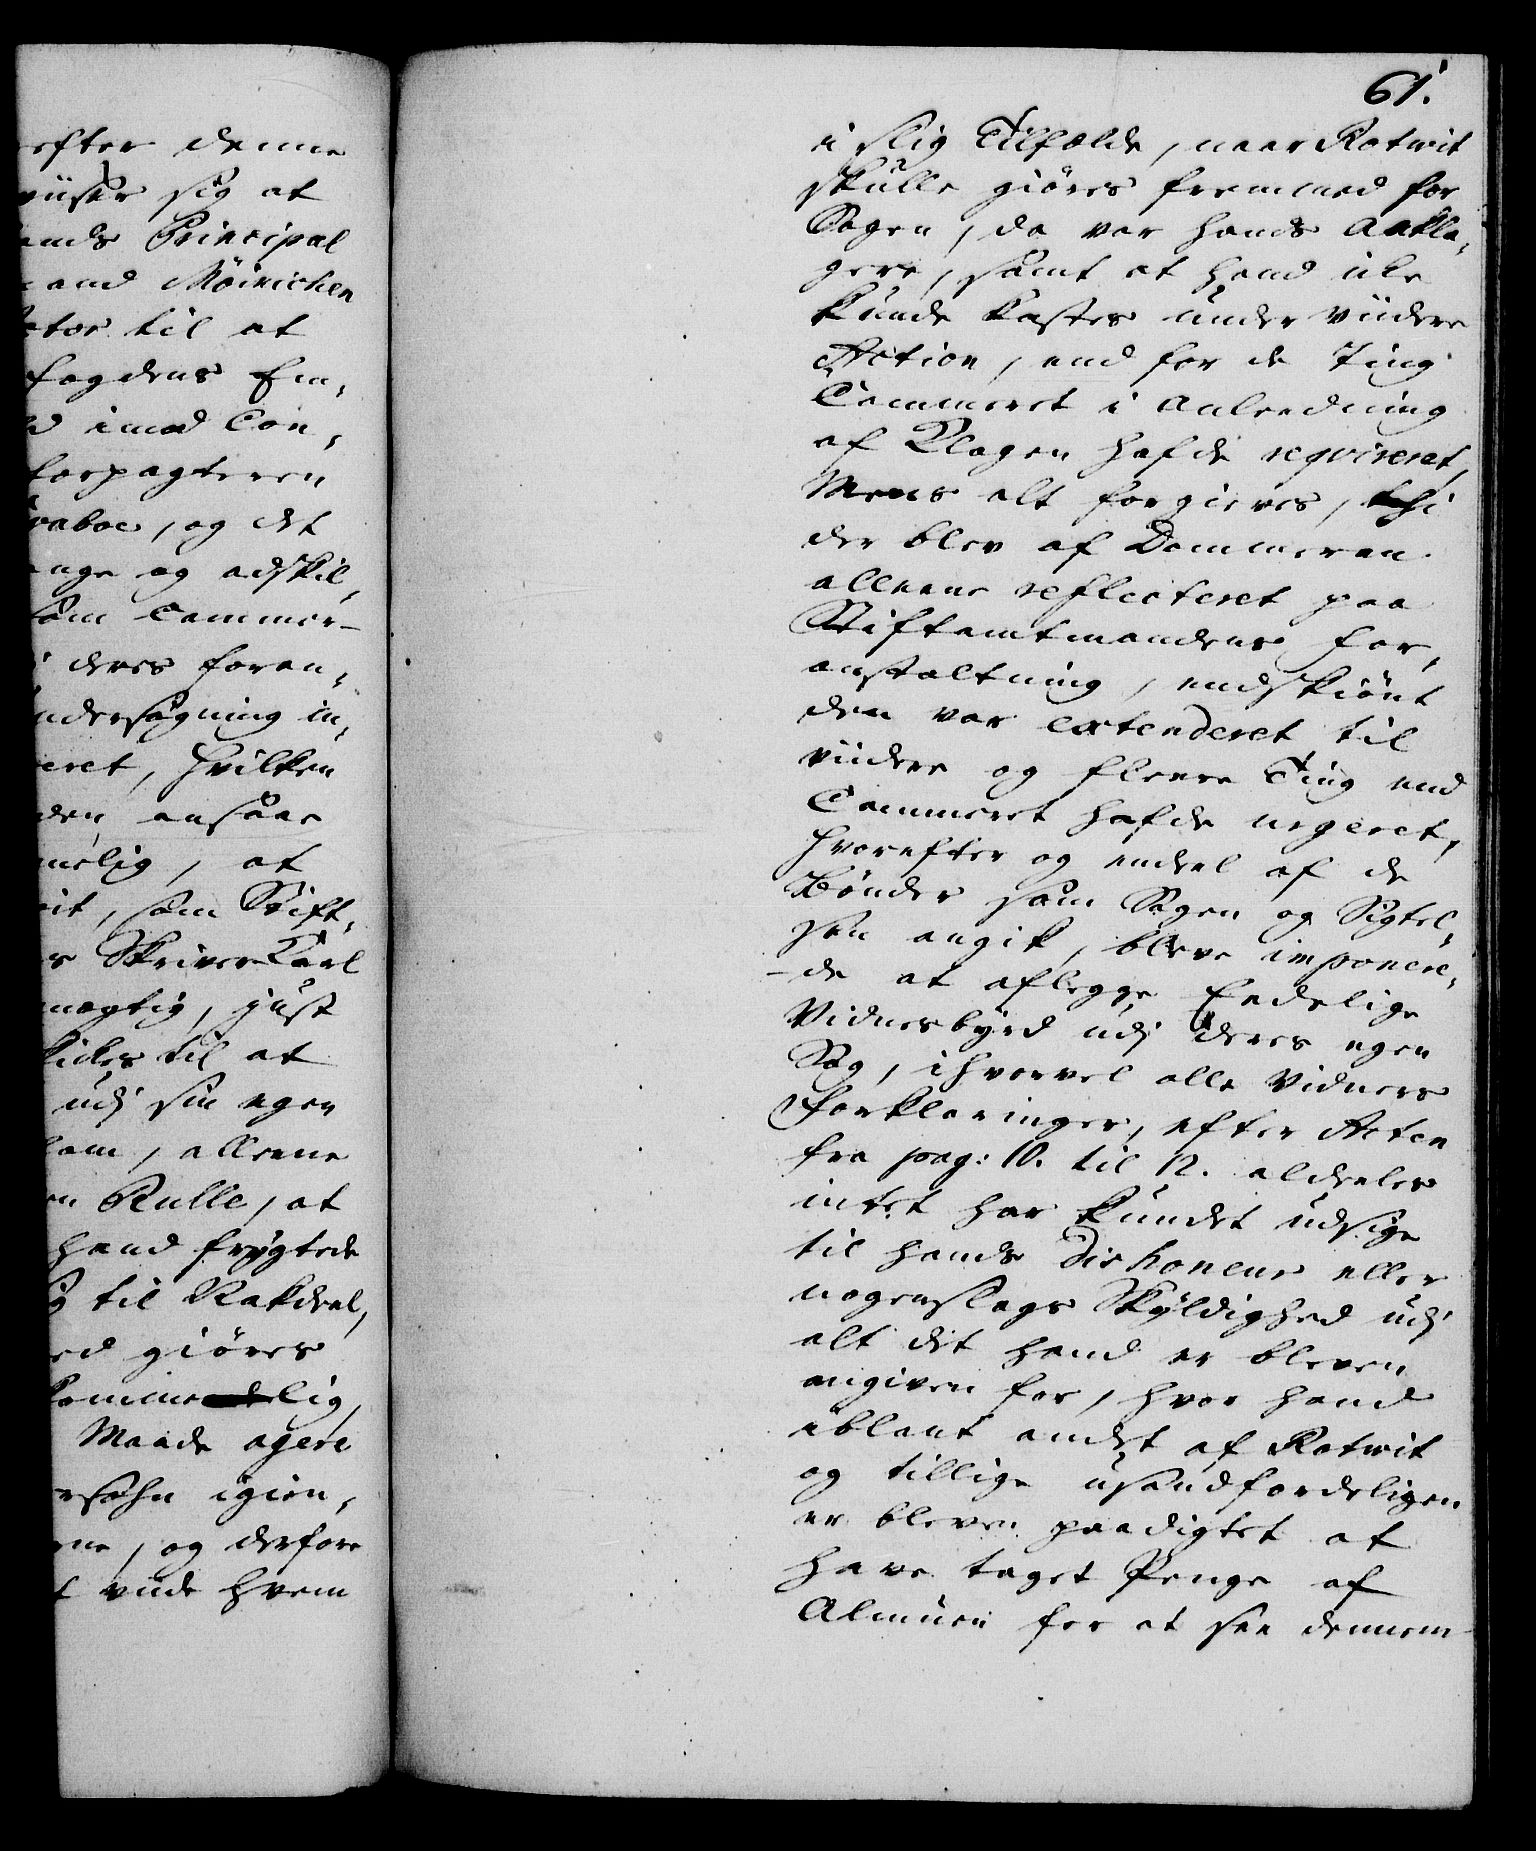 efter denne
viiser sig at
hands Principal
and Möinichen
ctor til at
fogdens Em,
imod Con,
forpagteren
og det
ange og adskil,
som Cammer-
deres foran,
undersøgning in,
eret, hvilken
den ansaae
melig, at
som Stift,
Skriver Karl
mægtig, just
til at
udj sin egen
allene
Rulle, at
hand frygtede
til Rakdeel,
giöres
kommelig,
Maade agere
igien,
og derfore
viide hvem
61.
i slig Tilfælde, naar Rotwit
skulle giöres fremmed for
Sagen, da var hands Ankla,
gere, samt at hand icke
kunde kastes under viidere
Action, end for de Ting
Cammeret i Anleedning
af Klagen hafde reqvireret,
Mens alt forgieves, thi
der blev af Dommeren
alleene reflecteret paa
Stiftamtmandens for,
anstaltning, endskiönt
den var extenderet til
viidere og fleere Ting end
Cammeret hafde urgeret,
hvorefter og endeel af de
Bönder som Sagen og Sigtel,
sen angik, bleve imponere,
de at aflegge Eedelige
Vidnesbyrd udj deres egen
Sag, ihvorvel alle Vidners
Forklaringer, efter Acten
fra pag: 10. til 12. aldeeles
intet har kundet udsige
til hands Dishoneur eller
nogenslags Skyldighed udj
alt det hand er bleven
angiven for, hvor hand
iblant andet af Rotwit
og tillige usandfærdeligen
er bleven paadigtet at
have taget Penge af
Almuen for at see dennem